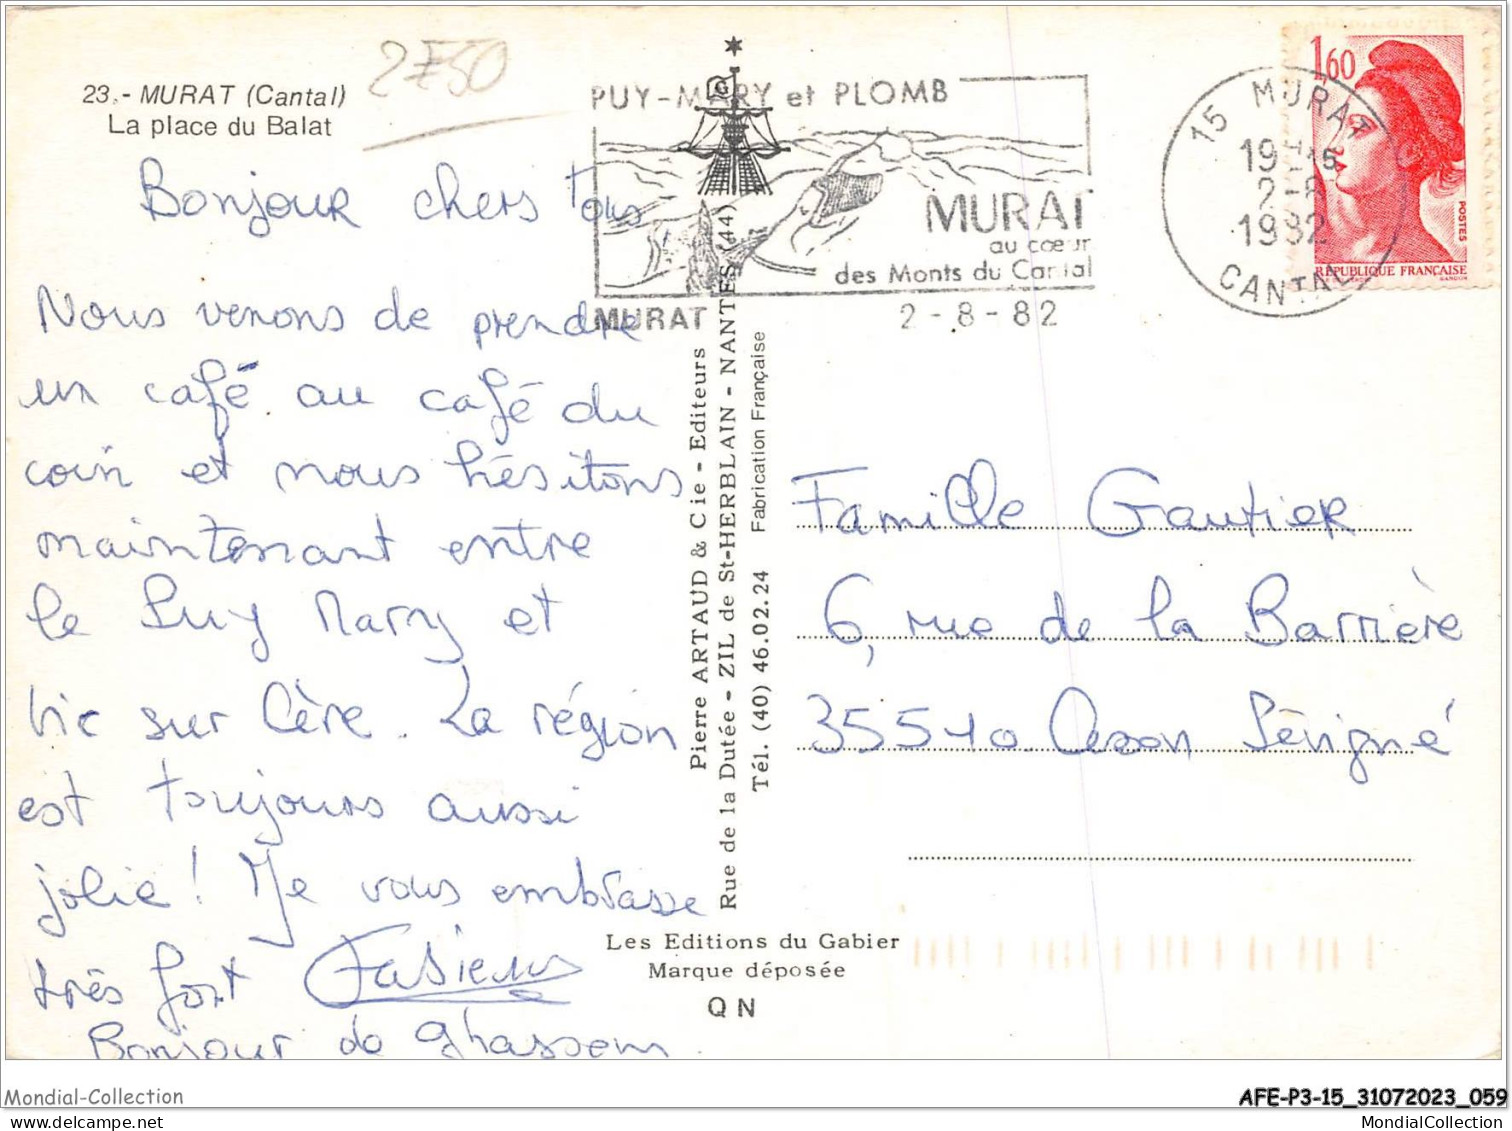 23.- MURAT (Cantal)
La place du Balat
2750
Bonjour chers Tous
Nous venons de prendre
un café au café du
coin et nous hésitons
maintenant entre
le Puy Mary et
Vic sur Cère. La région
est toujours aussi
jolie ! Je vous embrasse
très fort
Bonjour de Ghassem.
PUY-MARY et PLOMB
MURAT
au cœur
des Monts du Cantal
MURAT
2-8-82
G
15 MURAT
2-8
1982
CANTAL
1,60
POSTES
RÉPUBLIQUE FRANÇAISE
GANDON
Pierre ARTAUD & Cie - Editeurs
Rue de la Dutée - ZIL de St-HERBLAIN - NANTES (44)
Tél. (40) 46.02.24 Fabrication Française
Les Editions du Gabier
Marque déposée
QN
Famille Gautier
6, rue de la Barrière
35510 Sévigné
Mondial-Collection
AFE-P3-15_31072023_059
MondialCollection